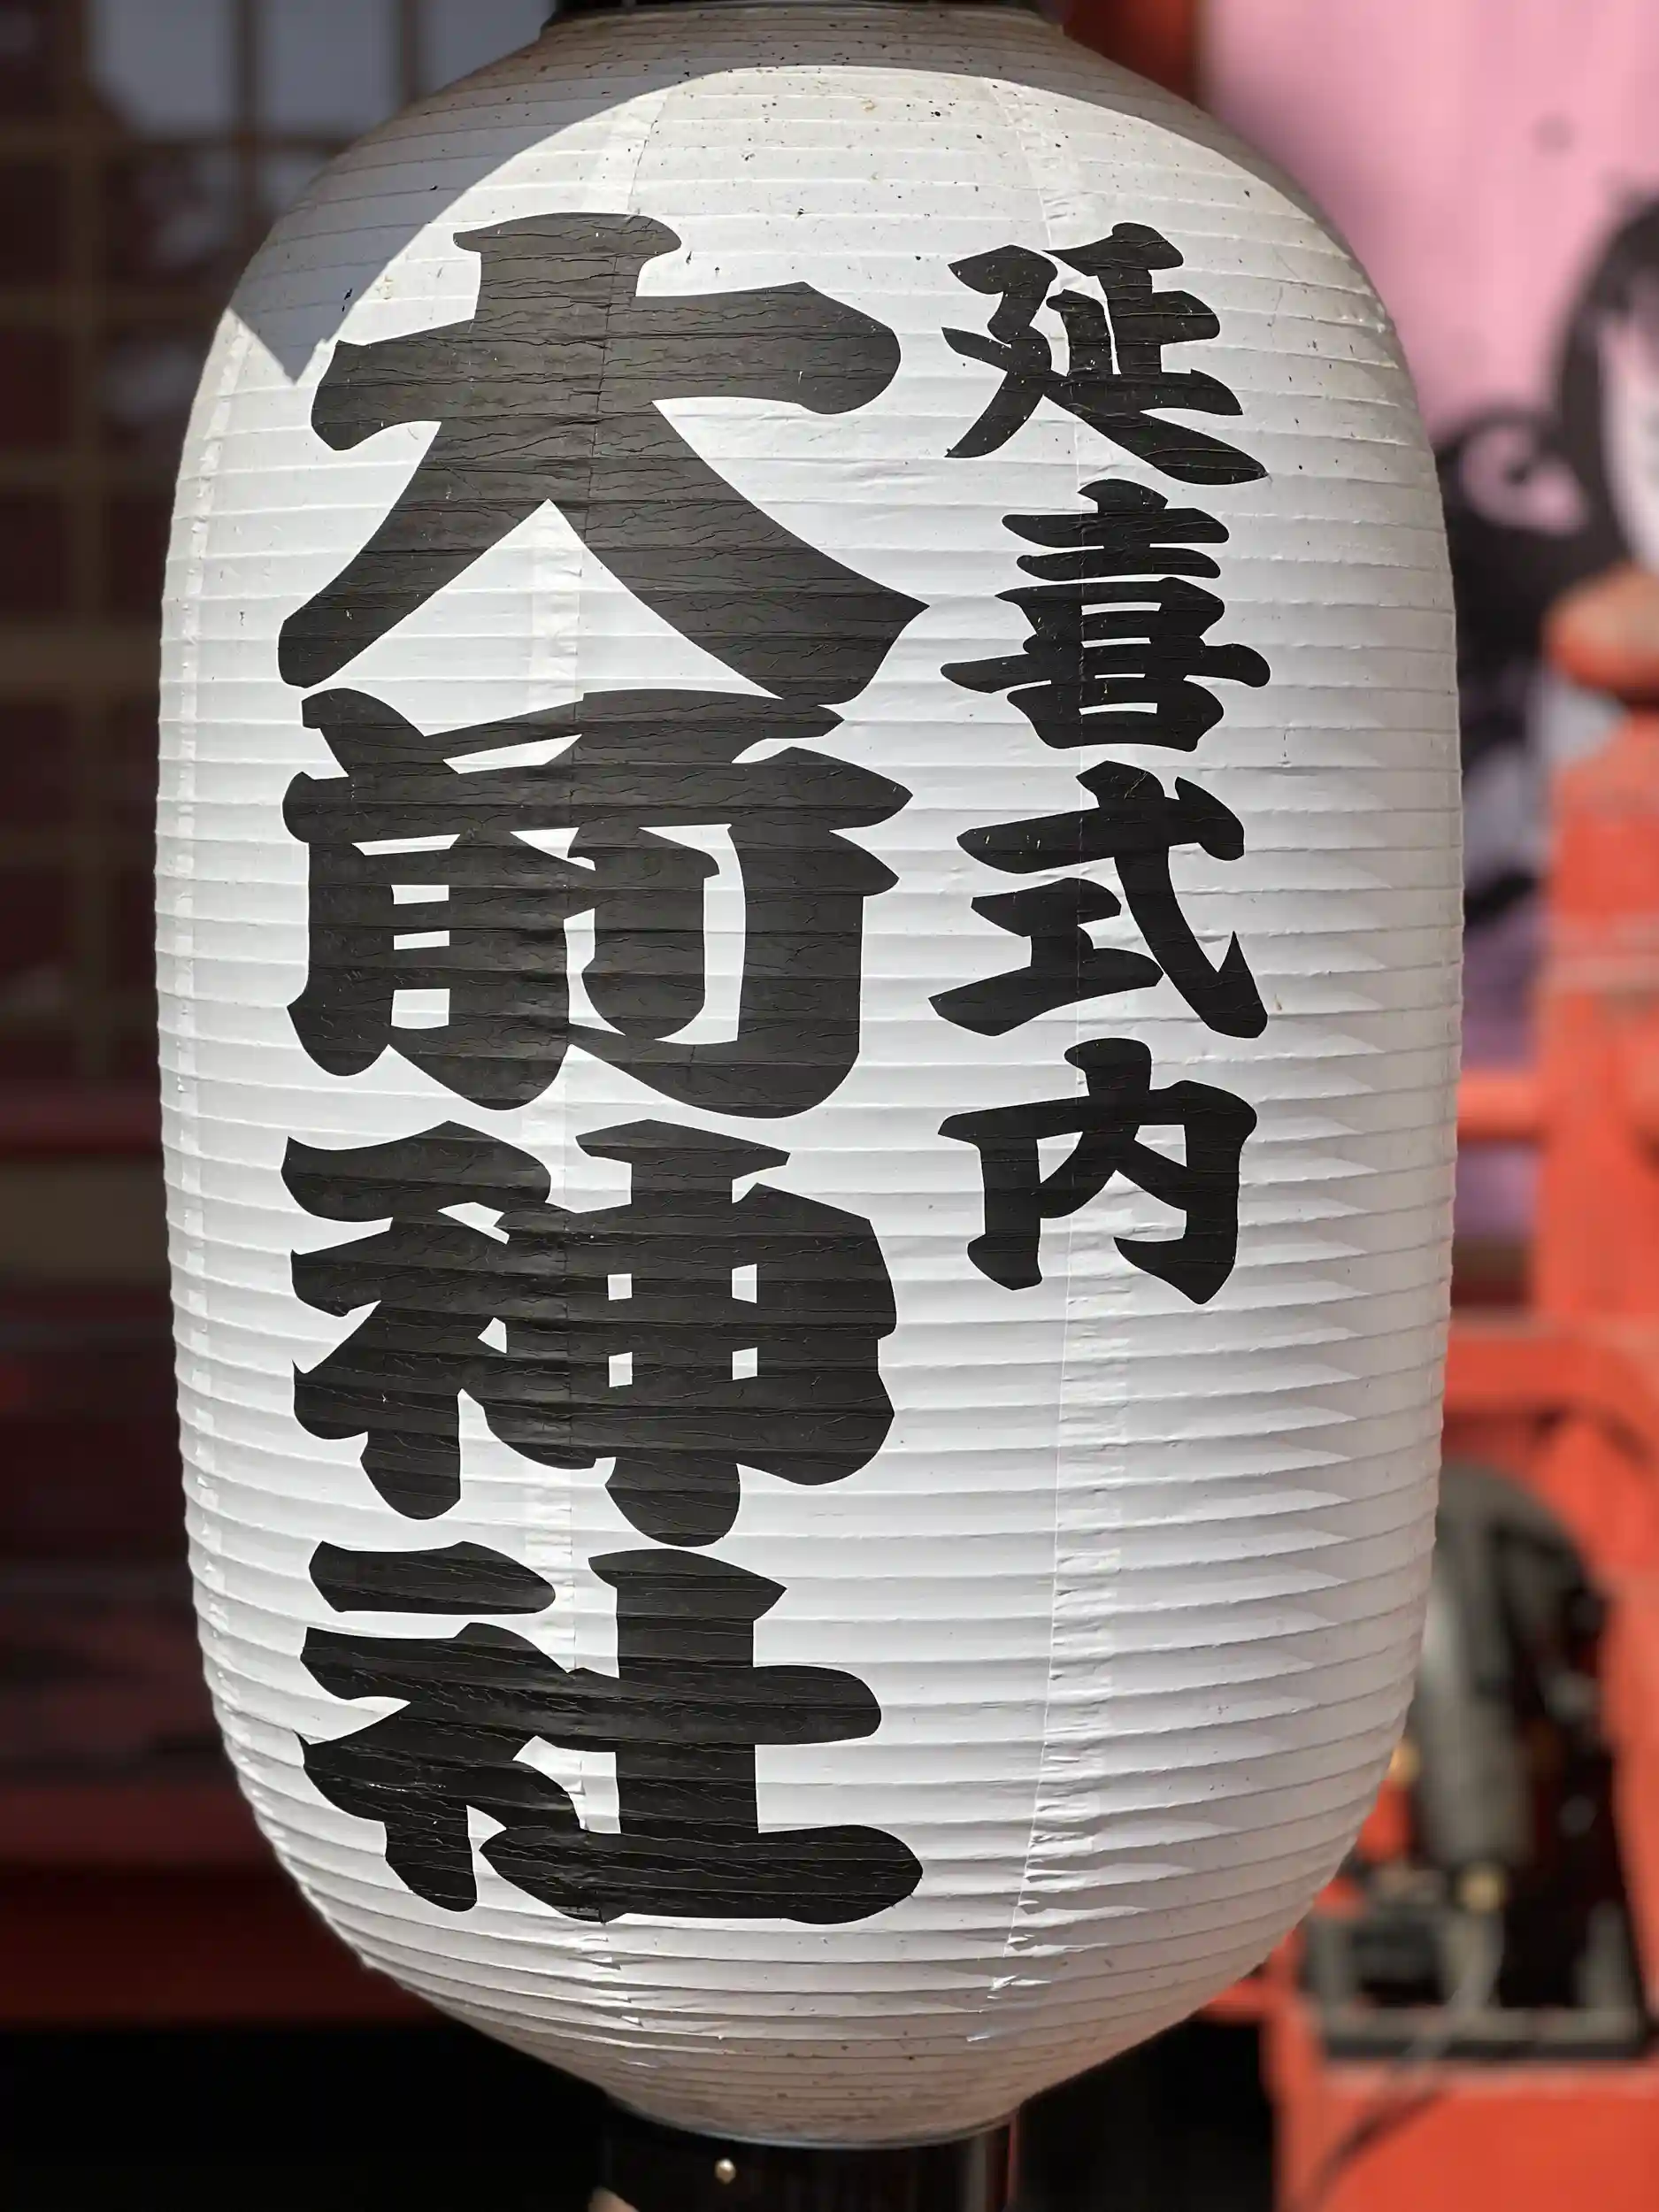 延喜式内
大前神社